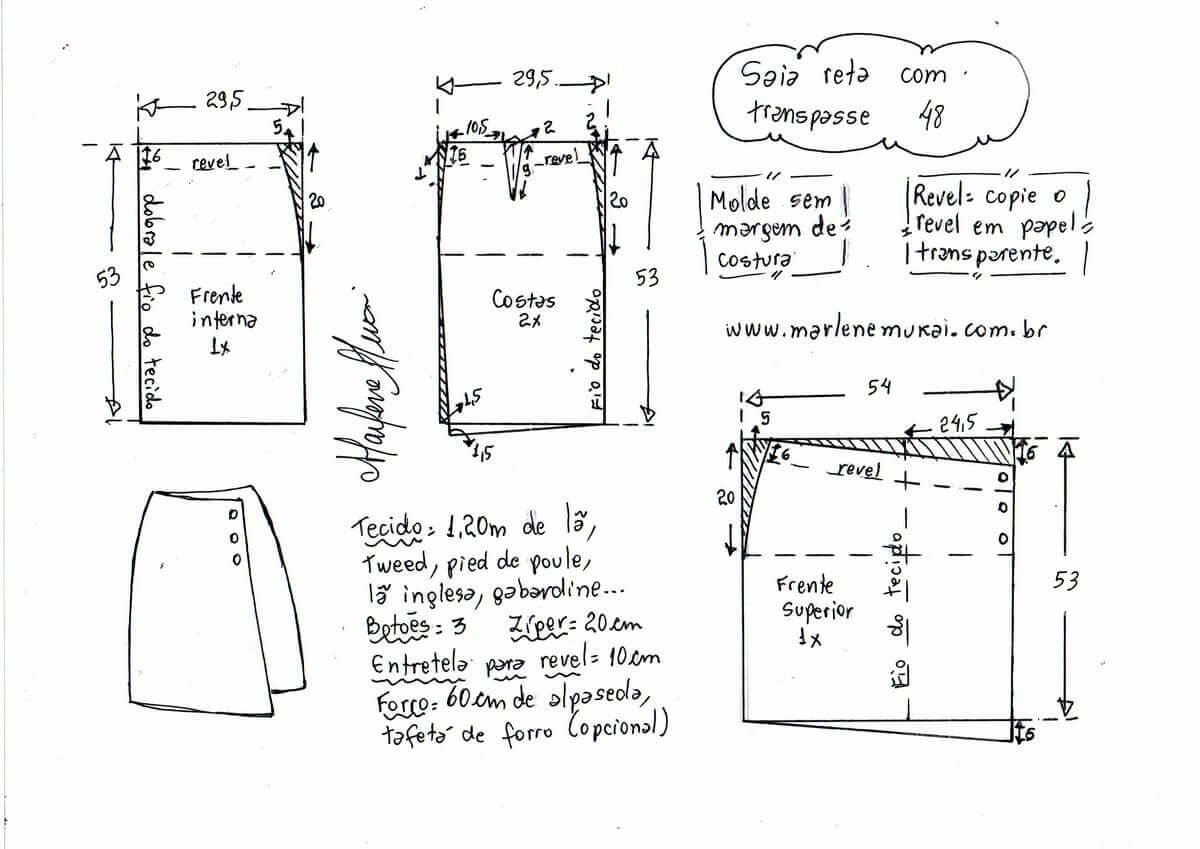 Saia reta com
transpasse 48
Molde sem
margem de
costura
Revel= copie o
revel em papel
transparente.
www.marlenemukai.com.br
29,5
5
6
revel
20
53
dobra e fio do tecido
Frente
interna
1x
29,5
10,5
2
2
1
6
9
revel
20
53
Costas
2x
Fio do tecido
1,5
1,5
Marlene Mukai
54
5
24,5
6
6
revel
20
53
Fio do tecido
Frente
Superior
1x
6
Tecido= 1,20m de lã,
tweed, pied de poule,
lã inglesa, gabardine...
Botões= 3 Zíper= 20cm
Entretela para revel= 10cm
Forro= 60cm de alpaseda,
tafetá de forro (opcional)